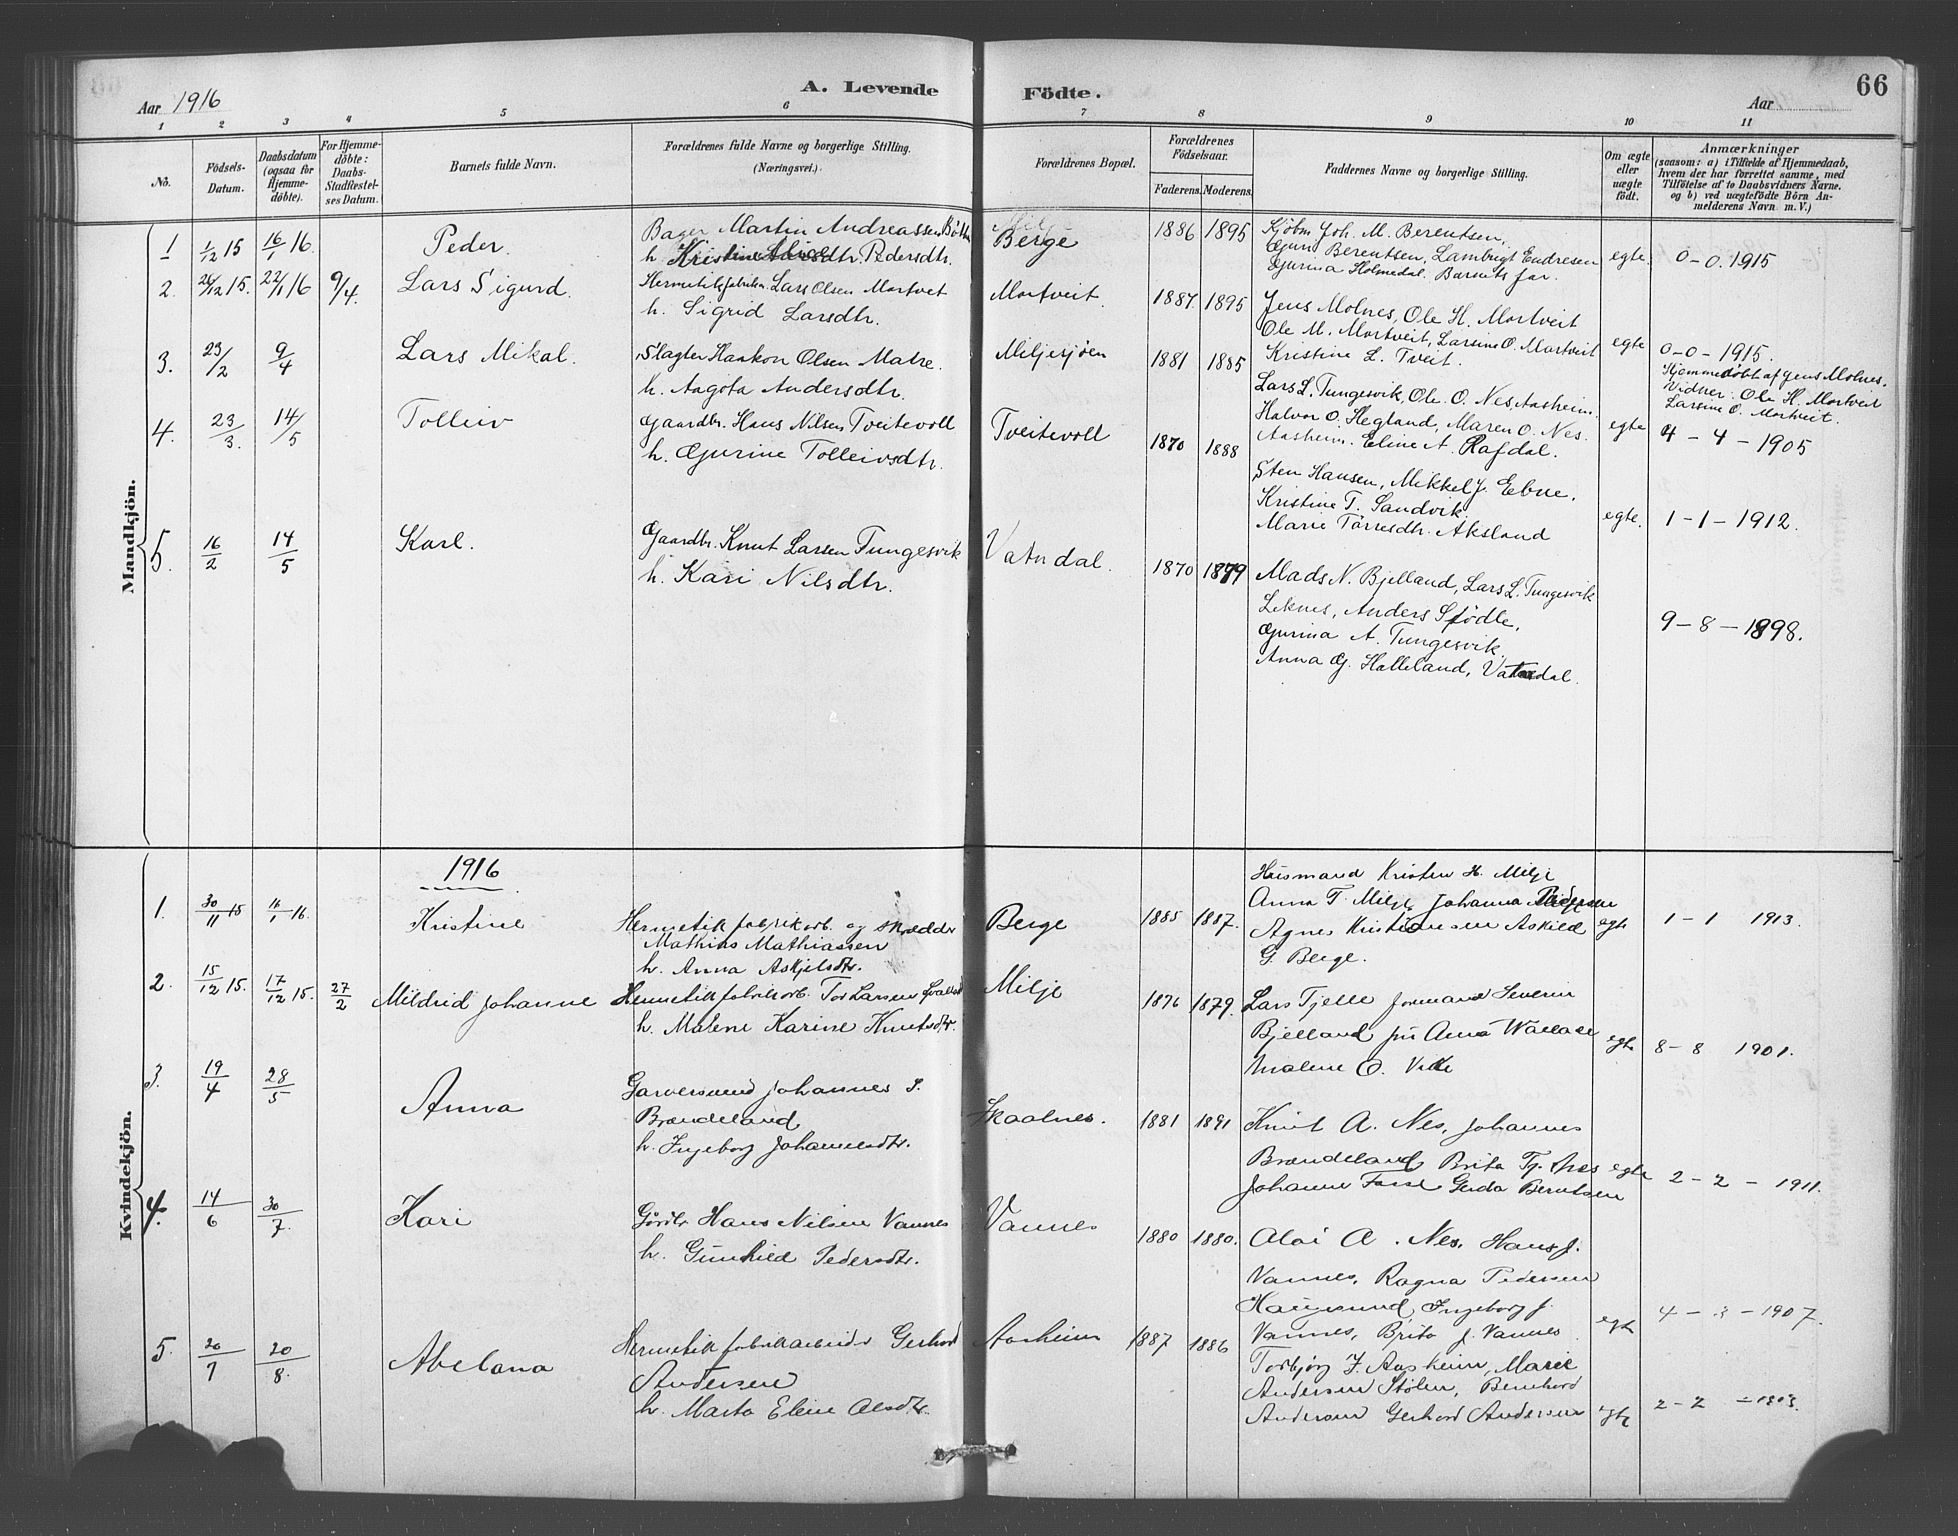 Aar 1916
A. Levende
Födte.
Aar
66
1 2 3 4 5 6 7 8 9 10 11
No.
Födsels-
Datum.
Daabsdatum
(ogsaa for
Hjemme-
döbte).
For Hjemme-
döbte:
Daabs-
Stadfæstel-
ses Datum.
Barnets fulde Navn.
Forældrenes fulde Navne og borgerlige Stilling.
(Næringsvei.)
Forældrenes Bopæl.
Forældrenes
Födselsaar.
Faderens. Moderens.
Faddernes Navne og borgerlige Stilling.
Om ægte
eller
uægte
födt.
Anmærkninger
(saasom: a) i Tilfælde af Hjemmedaab,
hvem der har forrettet samme, med
Tilföielse af to Daabsvidners Navne.
og b) ved uægtefödte Börn An-
melderens Navn m. V.)
Mandkjön.
1 1/12 15 16/1 16. Peder.
Bager Martin Andreassen
h. Kristine Pedersdtr.
Berge
1886 1895
Kjøbm. Joh. M. Berentsen,
Gjuri Berentsen, Lambrigt Endresen
Gjurina Holmedal. Barnets far.
egte.
0-0. 1915
2. 26/12 15. 22/1 16 9/4. Lars Sigurd.
Hermetikfabrikm. Lars Olsen Mortvet
h. Sigrid Larsdtr.
Mortveit.
1887. 1895
Jens Molnes, Ole H. Mortveit
Ole M. Mortveit, Larsine O. Mortveit
Kristine L. Tveit.
egte
0-0-1915.
Hjemmedøbt af Jens Molnes.
Vidner: Ole H. Mortveit
Larsine O. Mortveit.
3. 23/2 9/4 Lars Mikal.
Slagter Haakon Olsen Matre.
h. Aagota Andersdtr.
Miljesjøen
1881 1885
Lars L. Tungesvik, Ole O. Nes, Aasheim.
Halvor O. Hegland, Maren O. Nes.
Aasheim. Eline A. Rafdal.
egte
4-4-1905
4. 23/3. 14/5 Tolleiv
Gaardbr. Hans Nilsen Tveitevoll
h. Gjurine Tolleivsdtr.
Tveitevoll
1870 1888
Sten Hansen, Mikkel J. Ebne.
Kristine T. Sandvik
Marie Tørresdtr. Aksland
egte.
1-1-1912.
5. 16/2 14/5 Karl.
Gaardbr. Knut Larsen Tungesvik
h. Kari Nilsdtr.
Vatndal.
1870 1879
Mads N. Bjelland, Lars L. Tungesvik
Leknes, Anders Sjødle,
Gjurina A. Tungesvik.
Anna G. Halleland, Vatndal.
9-8-1898.
Kvindekjön.
1916
1. 30/11 15 16/1 16. Kristine
Hermetikfabrikarb. og skrædder
Mathias Mathiassen
h. Anna Askjelsdtr.
Berge
1885 1887.
Husmand Kristen H. Milje
Anna T. Milje, Johanna Pedersen
Agnes Kristiansen Askild
G. Berge.
egte
1-1 1913.
2. 15/12 15. 17/12 15. 27/2 Mildrid Johanne
Hermetikfabrikarb. Tor Larsen
h. Malene Karine Knutsdtr.
Milje
1876 1879.
Lars Tjelle formand Severin
Bjelland frü Anna Wallace
Malene O.
egte
8-8 1901.
3. 19/4 28/5 Anna
Garversvend Johannes S.
Brandeland
h. Ingeborg Johannesdtr.
Skaalnes.
1881 1891
Knut A. Nes, Johannes
Brandeland Brita Tj.
Johanne Fosse Gerda Berntsen
egte
2-2-1911.
4. 14/6 30/7. Kari
Gårdbr Hans Nilsen Vannes
h. Gunhild Pedersdtr.
Vannes
1880 1880.
Aloi A. Nes, Hans J.
Vannes, Ragna Pedersen
Haugesund, Ingeborg J.
Vannes, Brita J. Vannes
egte
4-3-1907.
5. 20/7 20/8. Abelana
Hermetikfabrikarbeider Gerhard
Andersen
h. Marta Eline Olsdtr.
Aasheim
1887 1886
Torbjørg J. Aasheim, Marie
Andersen Stølen, Bernhard
Andersen Gerhard Andersen
egte
2-2-1913.